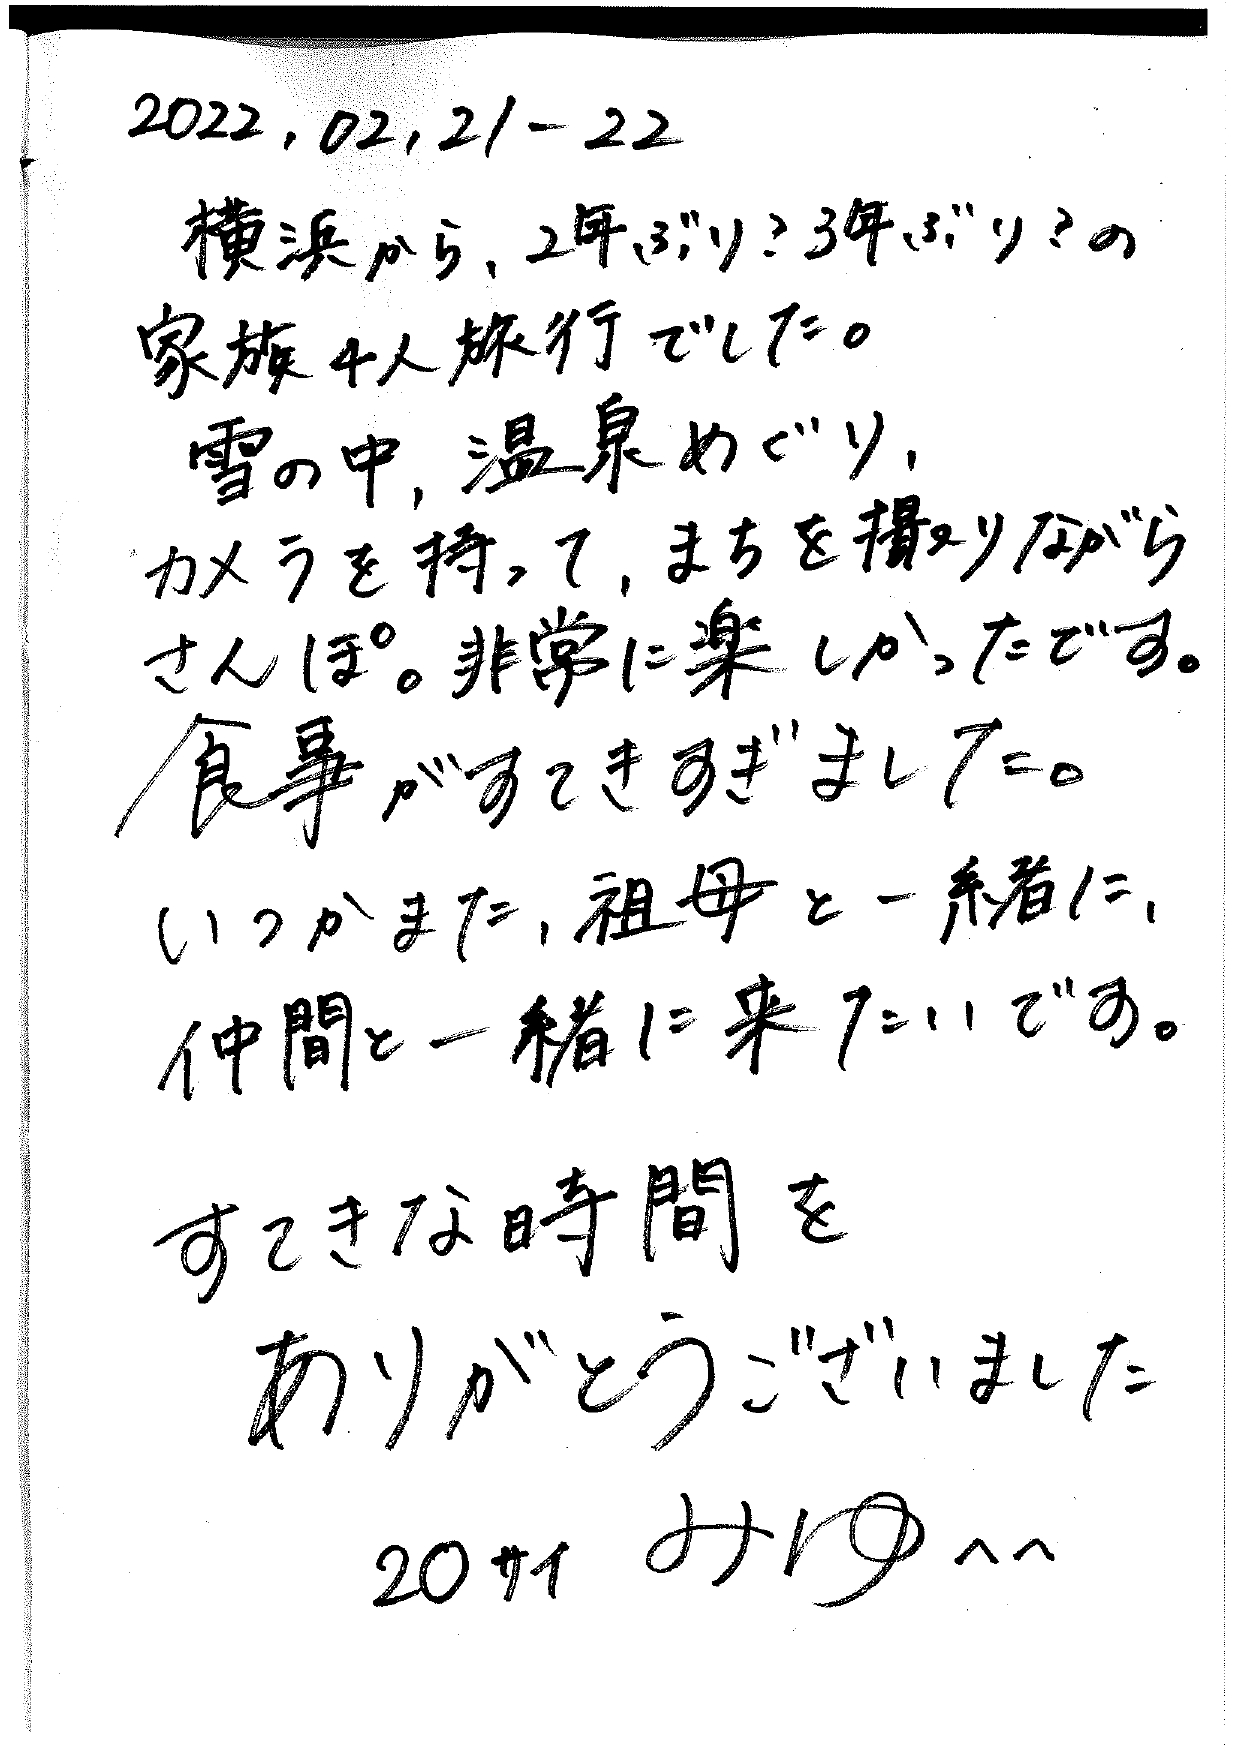 2022.02.21-22
横浜から、2年ぶり?3年ぶり?の
家族4人旅行でした。
雪の中、温泉めぐり、
カメラを持って、まちを撮りながら
さんぽ。非常に楽しかったです。
食事がすてきすぎました。
いつかまた、祖母と一緒に、
仲間と一緒に来たいです。
すてきな時間を
ありがとうございました
20サイ みゆ^^